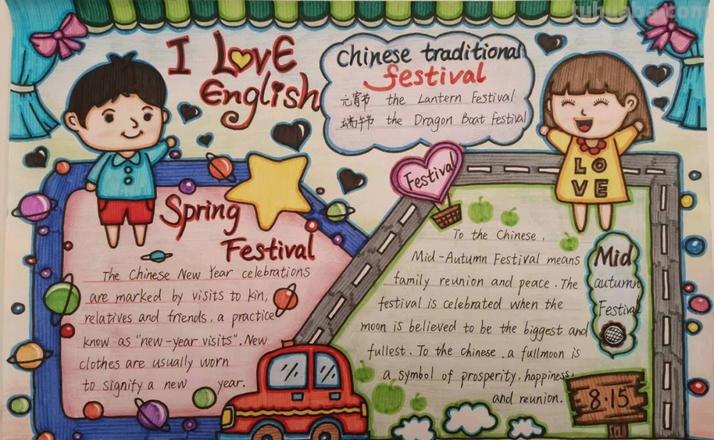 tuhuaba.com
I LOVE
English
chinese traditional
festival
元宵节 the Lantern Festival
端午节 the Dragon Boat Festival
LO
VE
Festival
Spring
Festival
The Chinese New Year celebrations
are marked by visits to kin,
relatives and friends, a practice
know as "new-year visits". New
clothes are usually worn
to signify a new year.
To the Chinese,
Mid-Autumn Festival means
family reunion and peace. The
festival is celebrated when the
moon is believed to be the biggest and
fullest. To the chinese, a fullmoon is
a symbol of prosperity, happiness,
and reunion.
Mid
autumn
Festival
8·15